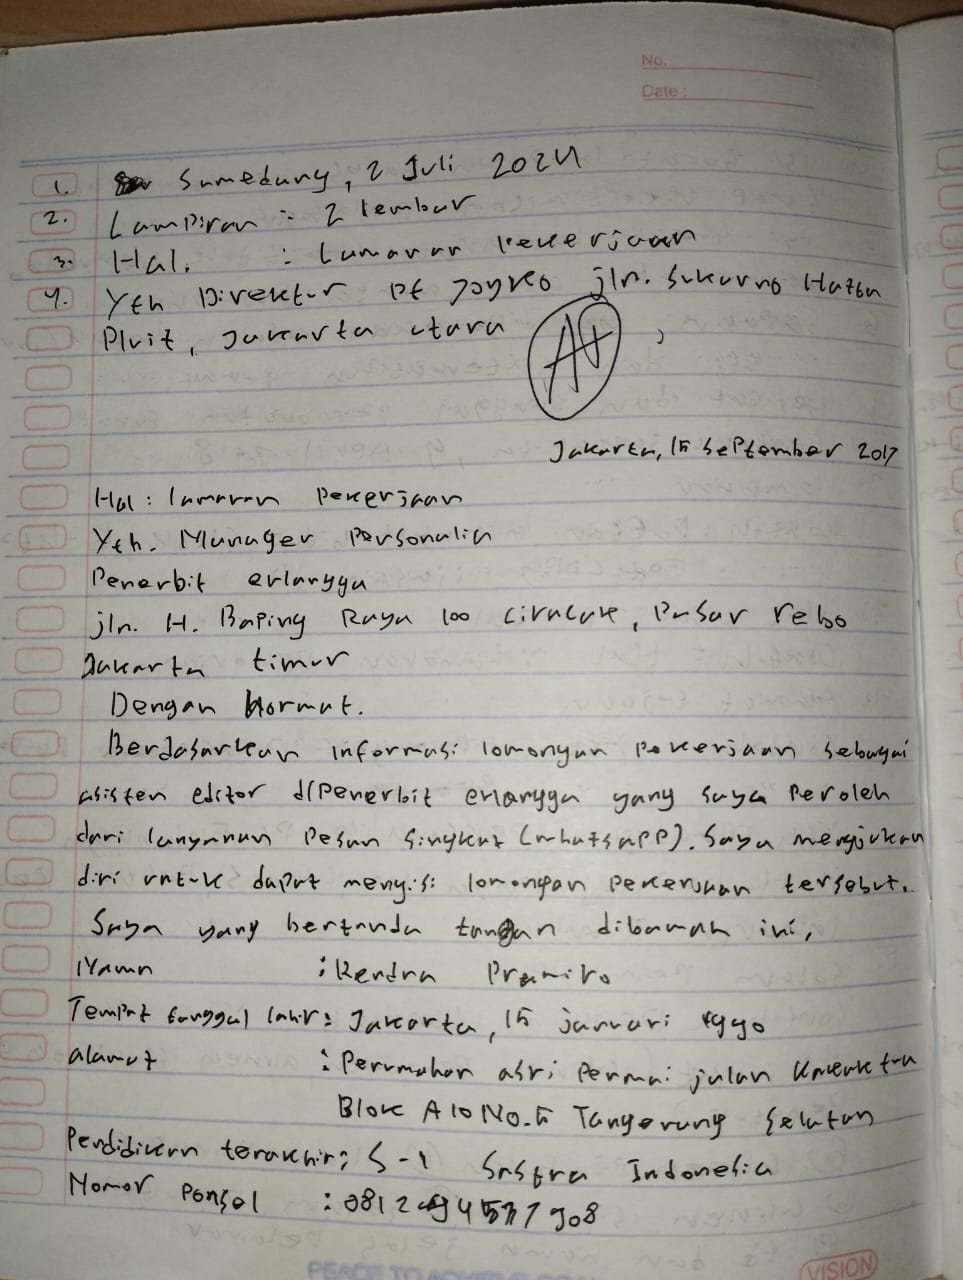 No.
Date:
1. Sumedang, 2 Juli 2024
2. Lampiran : 2 lembar
3. Hal. : Lamaran Pekerjaan
4. Yth Direktur PT Joyko jln. Sukurno Hatta
Pluit, Jakarta utara
A+
Jakarta, 15 September 2017
Hal : lamaran Pekerjaan
Yth. Manager Personalia
Penerbit erlangga
jln. H. Baping Raya 100 Ciracas, Pasar rebo
Jakarta timur
Dengan Hormat.
Berdasarkan informasi lowongan Pekerjaan sebagai
asisten editor di Penerbit erlangga yang saya Peroleh
dari layanan Pesan Singkat (whatsapp). Saya mengajukan
diri untuk dapat mengisi lowongan Pekerjaan tersebut.
Saya yang bertanda tangan dibawah ini,
Nama : Rendra Pramiro
Tempat tanggal lahir : Jakarta, 15 januari 1990
alamat : Perumahan asri Permai jalan
Blok A10 No.5 Tangerang Selatan
Pendidikan terakhir : S-1 Sastra Indonesia
Nomor Ponsel :
VISION